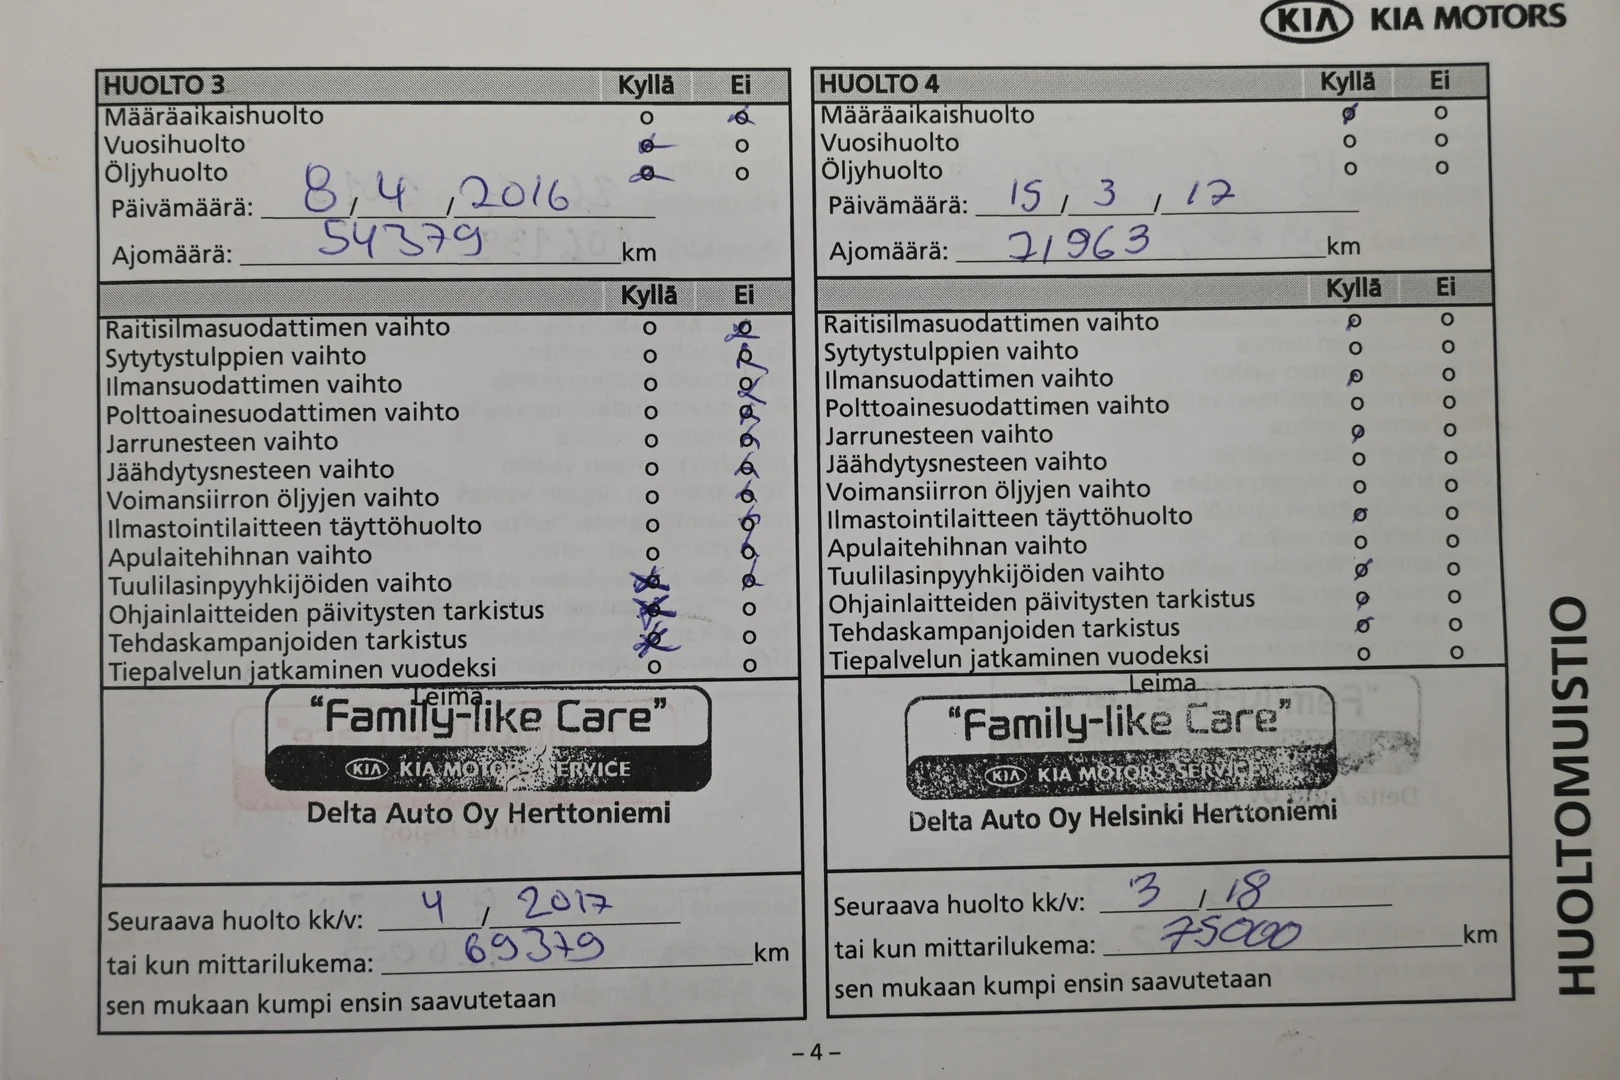 KIA KIA MOTORS
HUOLTO 3 Kyllä Ei
Määräaikaishuolto
Vuosihuolto
Öljyhuolto
Päivämäärä: 8 / 4 / 2016
Ajomäärä: 54379 km
Kyllä Ei
Raitisilmasuodattimen vaihto
Sytytystulppien vaihto
Ilmansuodattimen vaihto
Polttoainesuodattimen vaihto
Jarrunesteen vaihto
Jäähdytysnesteen vaihto
Voimansiirron öljyjen vaihto
Ilmastointilaitteen täyttöhuolto
Apulaitehihnan vaihto
Tuulilasinpyyhkijöiden vaihto
Ohjainlaitteiden päivitysten tarkistus
Tehdaskampanjoiden tarkistus
Tiepalvelun jatkaminen vuodeksi
Leima
"Family-like Care"
KIA KIA MOTORS SERVICE
Delta Auto Oy Herttoniemi
Seuraava huolto kk/v: 4 / 2017
tai kun mittarilukema: 69379 km
sen mukaan kumpi ensin saavutetaan
HUOLTO 4 Kyllä Ei
Määräaikaishuolto
Vuosihuolto
Öljyhuolto
Päivämäärä: 15 / 3 / 17
Ajomäärä: 71963 km
Kyllä Ei
Raitisilmasuodattimen vaihto
Sytytystulppien vaihto
Ilmansuodattimen vaihto
Polttoainesuodattimen vaihto
Jarrunesteen vaihto
Jäähdytysnesteen vaihto
Voimansiirron öljyjen vaihto
Ilmastointilaitteen täyttöhuolto
Apulaitehihnan vaihto
Tuulilasinpyyhkijöiden vaihto
Ohjainlaitteiden päivitysten tarkistus
Tehdaskampanjoiden tarkistus
Tiepalvelun jatkaminen vuodeksi
Leima
"Family-like Care"
KIA KIA MOTORS SERVICE
Delta Auto Oy Helsinki Herttoniemi
Seuraava huolto kk/v: 3 / 18
tai kun mittarilukema: 75000 km
sen mukaan kumpi ensin saavutetaan
HUOLTOMUISTIO
- 4 -